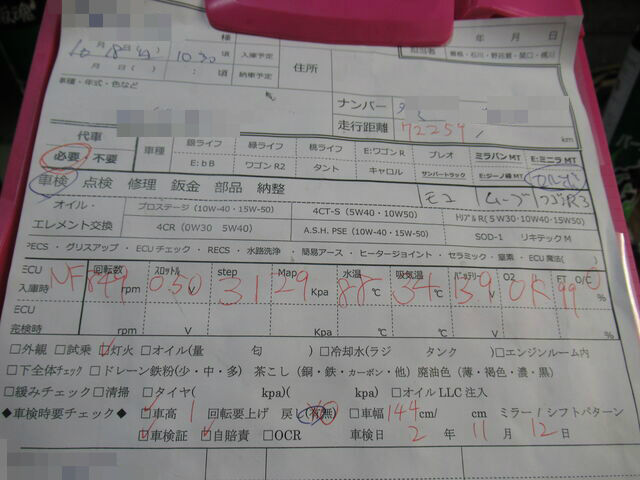 様 年 月 日
担当者
10月18日( ) 10:30頃 入庫予定 住所
月 日( ) : 頃 納車予定
車種・年式・色など
ナンバー
走行距離 72259 km
代車 必要・不要 車種 銀ライフ 緑ライフ 桃ライフ E:ワゴンR プレオ ミラバンMT E:ミニラMT
E:bB ワゴンR2 タント キャロル サンバートラック E:ジーノ緑MT
車検 点検 修理 鈑金 部品 納整 モコ ムーブ
オイル・ プロステージ (10W-40・15W-50) 4CT-S (5W40・10W50) (5W30・10W40・15W50)
エレメント交換 4CR (0W30 5W40) A.S.H. PSE (10W40・15W-50) SOD-1 リキテックM
PECS ・ グリスアップ ・ ECUチェック ・ RECS ・ 水路洗浄 ・ 簡易アース ・ ヒータージョイント ・ セラミック ・ 窒素 ・ ECU魔法(
ECU 入庫時 NF 回転数 849 rpm ｽﾛｯﾄﾙ 0.50 V step 31 Map 29 Kpa 水温 88 ℃ 吸気温 34 ℃ ﾊﾞｯﾃﾘ 13.9 V O2 OK FT O/C 99 %
ECU 完検時 rpm V Kpa ℃ ℃ V %
□外観 □試乗 □灯火 □オイル(量 匂 ) □冷却水(ラジ タンク ) □エンジンルーム内
□下全体チェック □ドレーン鉄粉(少・中・多) 茶こし (銅・鉄・カーボン・他) 廃油色 (薄・褐色・濃・黒)
□緩みチェック □清掃 □タイヤ( kpa)( kpa) □オイルLLC注入
◆車検時要チェック □車高 1 回転要上げ 戻し(有無) □車幅 144 cm/ cm ミラー / シフトパターン
□車検証 □自賠責 □OCR 車検日 2 年 11 月 12 日